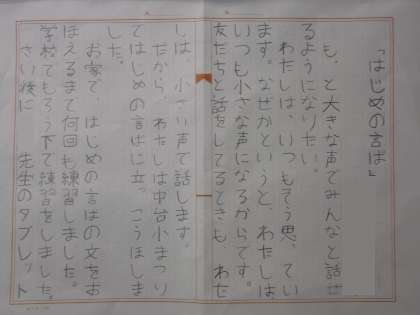 「はじめの言ば」
も、と大きな声でみんなと話せ
るようになりたい。
わたしは、いつもそう思、てい
ます。なぜかというと、わたしは
いつも小さな声になるからです。
友だちと話をしてるときも、わた
しは、小さい声で話します。
だから、わたしは中台小まつり
ではじめの言ばに立、こうほしま
した。
お家で、はじめの言ばの文をお
ぼえるまで何回も練習しました。
学校でもろう下で練習をしました。
さい後に 先生のタブレット